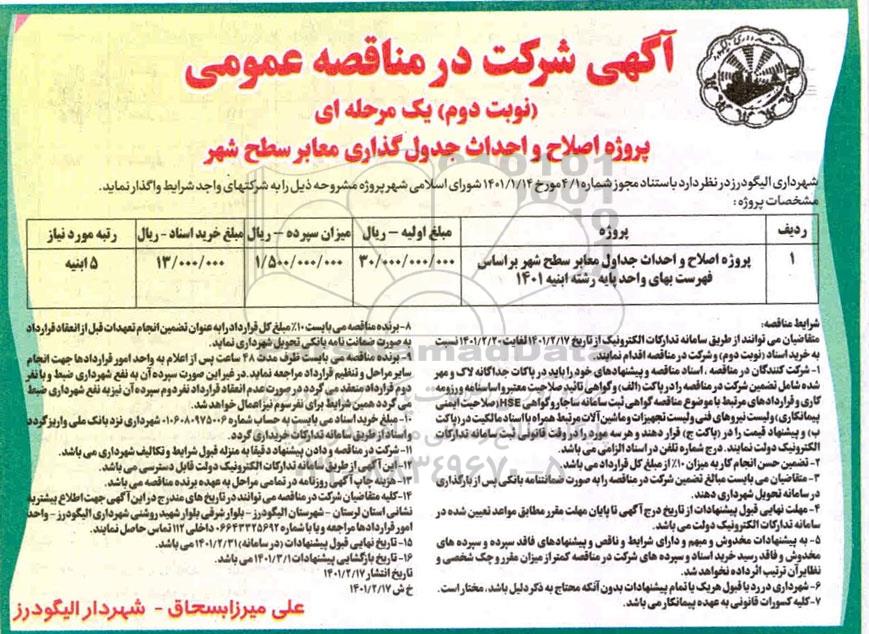 آگهی شرکت در مناقصه عمومی
(نوبت دوم) یک مرحله ای
پروژه اصلاح و احداث جدول گذاری معابر سطح شهر
شهرداری الیگودرز در نظر دارد باستناد مجوز شماره ۴/۱ مورخ ۱۴۰۱/۱/۱۴ شورای اسلامی شهر پروژه مشروحه ذیل را به شرکتهای واجد شرایط واگذار نماید.
مشخصات پروژه:
ردیف پروژه مبلغ اولیه – ریال میزان سپرده – ریال مبلغ خرید اسناد - ریال رتبه مورد نیاز
۱ پروژه اصلاح و احداث جداول معابر سطح شهر بر اساس ۳۰/۰۰۰/۰۰۰/۰۰۰ ۱/۵۰۰/۰۰۰/۰۰۰ ۱۳/۰۰۰/۰۰۰ ۵ ابنیه
فهرست بهای واحد پایه رشته ابنیه ۱۴۰۱
شرایط مناقصه:
متقاضیان می توانند از طریق سامانه تدارکات الکترونیک از تاریخ ۱۴۰۱/۲/۱۷ لغایت ۱۴۰۱/۲/۲۰ نسبت
به خرید اسناد (نوبت دوم) و شرکت در مناقصه اقدام نمایند.
۱- شرکت کنندگان در مناقصه ، اسناد مناقصه و پیشنهادهای خود را باید در پاکات جداگانه لاک و مهر
شده شامل تضمین شرکت در مناقصه را در پاکت (الف) و گواهی تائید صلاحیت معتبر و اساسنامه و رزومه
کاری و قراردادهای مرتبط با موضوع مناقصه گواهی ثبت سامانه ساجار و گواهی HSE (صلاحیت ایمنی
پیمانکاری) و لیست نیروهای فنی و لیست تجهیزات و ماشین آلات مرتبط همراه با اسناد مالکیت در (پاکت
ب) و پیشنهاد قیمت را در (پاکت ج) قرار دهند و هر سه مورد را در وقت قانونی ثبت سامانه تدارکات
الکترونیک دولت نمایند. درج شماره تلفن در اسناد الزامی می باشد.
۲- تضمین حسن انجام کار به میزان ۱۰٪ از مبلغ کل قرارداد می باشد
۳- متقاضیان می بایست مبالغ تضمین شرکت در مناقصه را به صورت ضمانتنامه بانکی پس از بارگذاری
در سامانه تحویل شهرداری دهند.
۴- مهلت نهایی قبول پیشنهادات از تاریخ درج آگهی تا پایان مهلت مقرر مطابق مواعد تعیین شده در
سامانه تدارکات الکترونیک دولت می باشد.
۵- به پیشنهادات مخدوش و مبهم و دارای شرایط و ناقص و پیشنهادهای فاقد سپرده و سپرده های
مخدوش و فاقد رسید خرید اسناد و سپرده های شرکت در مناقصه کمتر از میزان مقرر و چک شخصی و
نظایر آن ترتیب اثر داده نخواهد شد.
۶- شهرداری در رد یا قبول هر یک یا تمام پیشنهادات بدون آنکه محتاج به ذکر دلیل باشد، مختار است.
۷- کلیه کسورات قانونی به عهده پیمانکار می باشد.
۸- برنده مناقصه می بایست ۱۰٪ مبلغ کل قرارداد را به عنوان تضمین انجام تعهدات قبل از انعقاد قرارداد
به صورت ضمانت نامه بانکی تحویل شهرداری نماید.
۹- برنده مناقصه می بایست ظرف مدت ۴۸ ساعت پس از اعلام به واحد امور قراردادها جهت انجام
سایر مراحل و تنظیم قرارداد مراجعه نماید. در غیر این صورت سپرده آن به نفع شهرداری ضبط و با نفر
دوم قرارداد منعقد می گردد در صورت عدم انعقاد قرارداد نفر دوم سپرده آن نیز به نفع شهرداری ضبط
می گردد همین شرایط برای نفر سوم نیز اعمال خواهد شد.
۱۰- مبلغ خرید اسناد می بایست به حساب شماره ۰۱۰۶۰۸۰۹۷۵۰۰۶ شهرداری نزد بانک ملی واریز گردد
و اسناد از طریق سامانه تدارکات خریداری گردد.
۱۱- شرکت در مناقصه و دادن پیشنهاد دقیقا به منزله قبول شرایط و تکالیف شهرداری می باشد.
۱۲- این آگهی از طریق سامانه تدارکات الکترونیک دولت قابل دسترسی می باشد.
۱۳- هزینه چاپ آگهی روزنامه در تمامی مراحل به عهده برنده مناقصه می باشد.
۱۴- کلیه متقاضیان شرکت در مناقصه می توانند در تاریخ های مندرج در این آگهی جهت اطلاع بیشتر به
نشانی استان لرستان - شهرستان الیگودرز - بلوار شرقی بلوار شهید روشنی شهرداری الیگودرز - واحد
امور قراردادها مراجعه و یا با شماره ۰۶۶۴۳۳۲۵۶۹۲ داخلی ۱۱۲ تماس حاصل نمایند.
۱۵- تاریخ نهایی قبول پیشنهادات (در سامانه) ۱۴۰۱/۲/۳۱ می باشد.
۱۶- تاریخ بازگشایی پیشنهادات ۱۴۰۱/۳/۱ می باشد.
تاریخ انتشار ۱۴۰۱/۲/۱۷
خ ش ۱۴۰۱/۲/۱۷
علی میرزابسحاق - شهردار الیگودرز